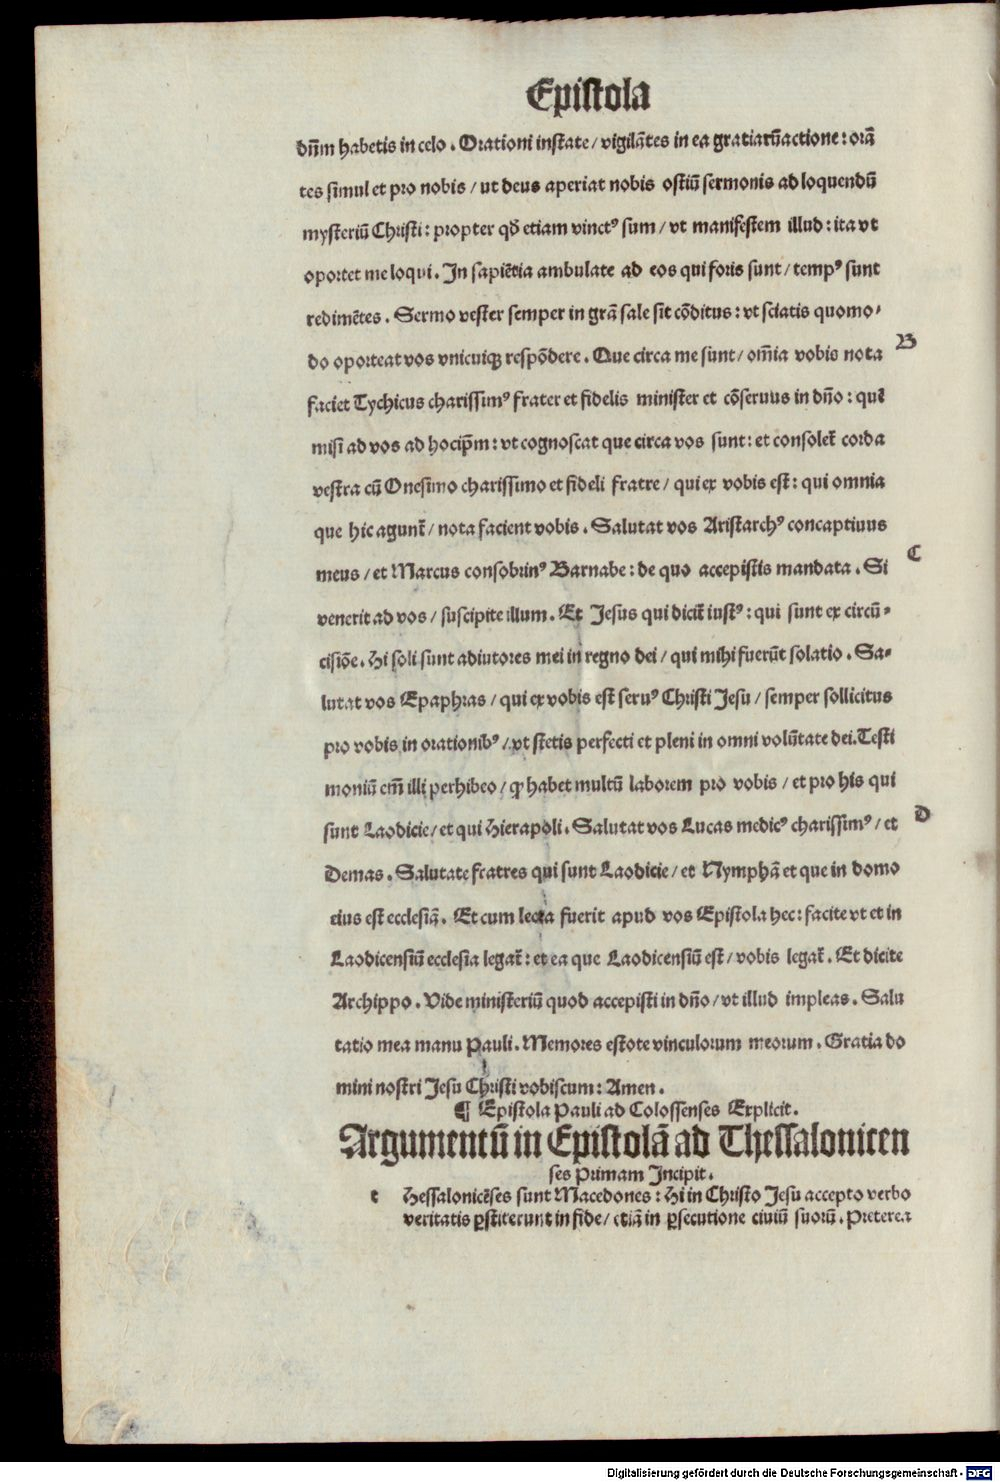 Epistola
dn̄m habetis in celo . Orationi instate / vigilātes in ea gratiarū actione : orā
tes simul et pro nobis / ut deus aperiat nobis ostiū sermonis ad loquendū
mysteriū Christi : propter qđ etiam vinctꝰ sum / vt manifestem illud : ita vt
oportet me loqui . In sapiētia ambulate ad eos qui foris sunt / tempꝰ sunt
redimētes . Sermo vester semper in grā sale sit cōditus : vt sciatis quomo-
do oporteat vos vnicuiqꝫ respōdere . Que circa me sunt / om̄ia vobis nota
B
faciet Tychicus charissimꝰ frater et fidelis minister et cōseruus in dn̄o : quē
misi ad vos ad hocip̄m : vt cognoscat que circa vos sunt : et consolet̄ corda
vestra cū Onesimo charissimo et fideli fratre / qui ex vobis est : qui omnia
que hic agunt̄ / nota facient vobis . Salutat vos Aristarchꝰ concaptiuus
meus / et Marcus consobrinꝰ Barnabe : de quo accepistis mandata . Si
C
venerit ad vos / suscipite illum . Et Jesus qui dicit̄ iustꝰ : qui sunt ex circū-
cisiōe . Hi soli sunt adiutores mei in regno dei / qui mihi fuerūt solatio . Sa-
lutat vos Epaphras / qui ex vobis est seruꝰ Christi Jesu / semper sollicitus
pro vobis in orationibꝰ / vt stetis perfecti et pleni in omni volūtate dei. Testi
moniū em̄ illi perhibeo / ꝙ habet multū laborem pro vobis / et pro his qui
sunt Laodicie / et qui Hierapoli . Salutat vos Lucas medicꝰ charissimꝰ / et
D
Demas . Salutate fratres qui sunt Laodicie / et Nymphā et que in domo
eius est ecclesiā . Et cum lecta fuerit apud vos Epistola hec : facite vt et in
Laodicensiū ecclesia legat̄ : et ea que Laodicensiū est / vobis legat̄ . Et dicite
Archippo . Vide ministeriū quod accepisti in dn̄o / vt illud impleas . Salu
tatio mea manu Pauli . Memores estote vinculorum meorum . Gratia do
mini nostri Jesu Christi vobiscum : Amen .
¶ Epistola Pauli ad Colossenses Explicit .
Argumentū in Epistolā ad Thessalonicen
ses Primam Incipit .
t Hessalonicēses sunt Macedones : Hi in Christo Jesu accepto verbo
veritatis ꝑstiterunt in fide / etiā in ꝑsecutione ciuiū suorū . Preterea
Digitalisierung gefördert durch die Deutsche Forschungsgemeinschaft - DFG